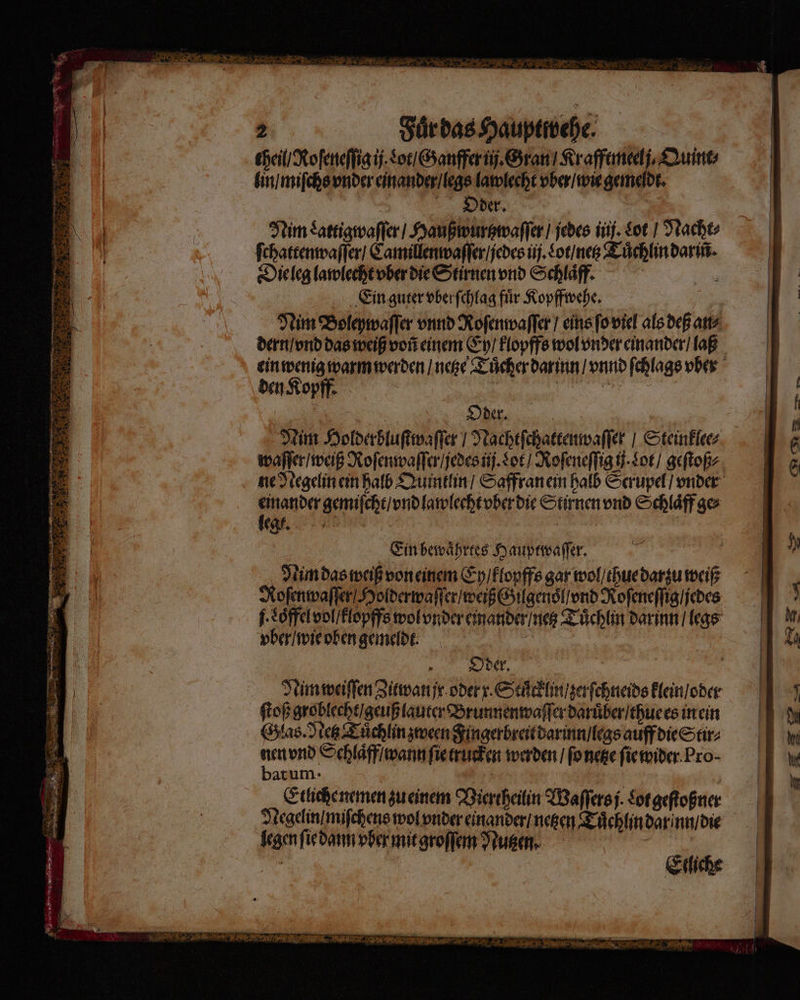 2 Fuͤr das Hauptwehe.
theil/ Roſeneſſig ij. Lot/ Gauffer iij. Gran/ Krafftmeel j. Quint⸗
lin/ miſchs vnder einander/ legs lawlecht vber/ wie gemeldt.
Oder.
Nim Lattigwaſſer/ Haußwurtzwaſſer/ jedes iiij. Lot/ Nacht⸗
ſchattenwaſſer/ Camillenwaſſer/ jedes iij. Lot/ netz Tuͤchlin dariñ.
Die leg lawlecht vber die Stirnen vnd Schlaͤff.
Ein guter vberſchlag fuͤr Kopffwehe.
Nim Boleywaſſer vnnd Roſenwaſſer/ eins ſo viel als deß an⸗
dern/ vnd das weiß voñ einem Ey/ klopffs wol vnder einander/ laß
ein wenig warm werden/ netze Tuͤcher darinn/ vnnd ſchlags vber
den Kopff.
Oder.
Nim Holderbluſtwaſſer/ Nachtſchattenwaſſer/ Steinklee⸗
waſſer/ weiß Roſenwaſſer/ jedes iij. Lot/ Roſeneſſig ij. Lot/ geſtoß⸗
ne Negelin ein halb Quintlin/ Saffran ein halb Scrupel/ vnder
einander gemiſcht/ vnd lawlecht vber die Stirnen vnd Schlaͤff ge⸗
legt.
Ein bewaͤhrtes Hauptwaſſer.
Nim das weiß von einem Ey/ klopffs gar wol/ thue darzu weiß
Roſenwaſſer/ Holderwaſſer/ weiß Gilgenoͤl/ vnd Roſeneſſig/ jedes
j. Loͤffel vol/ klopffs wol vnder einander/ netz Tuͤchlin darinn/ legs
vber/ wie oben gemeldt.
Oder.
Nim weiſſen Zitwan jx. oder x. Stuͤcklin/ zerſchneids klein/ oder
ſtoß groblecht/ geuß lauter Brunnenwaſſer daruͤber/ thue es in ein
Glas. Netz Tuͤchlin zween Fingerbreit darinn/ legs auff die Stir⸗
nen vnd Schlaͤff/ wann ſie trucken werden/ ſo netze ſie wider. Pro-
batum.
Etliche nemen zu einem Viertheilin Waſſers j. Lot geſtoßner
Negelin/ miſchens wol vnder einander/ netzen Tuͤchlin darinn/ die
legen ſie dann vber mit groſſem Nutzen.
Etliche